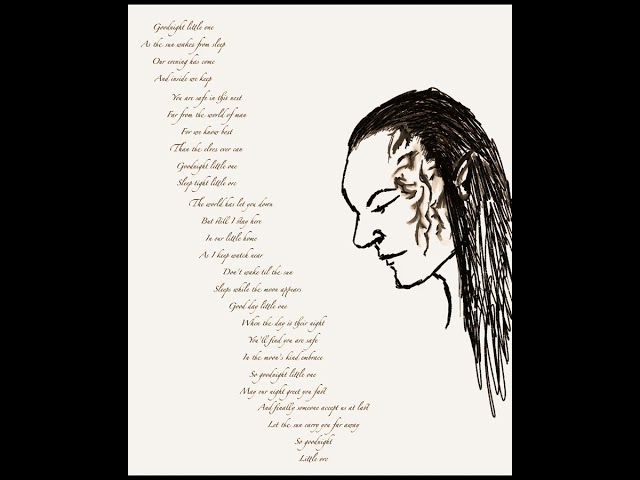 Goodnight little one
As the sun wakes from sleep
Our evening has come
And inside we keep
You are safe in this nest
Far from the world of man
For we know best
Than the elves ever can
Goodnight little one
Sleep tight little orc
The world has let you down
But still I stay here
In our little home
As I keep watch near
Don't wake til the sun
Sleeps while the moon appears
Good day little one
When the day is their night
You'll find you are safe
In the moon's kind embrace
So goodnight little one
May our night greet you fast
And finally someone accept us at last
Let the sun carry you far away
So goodnight
Little orc